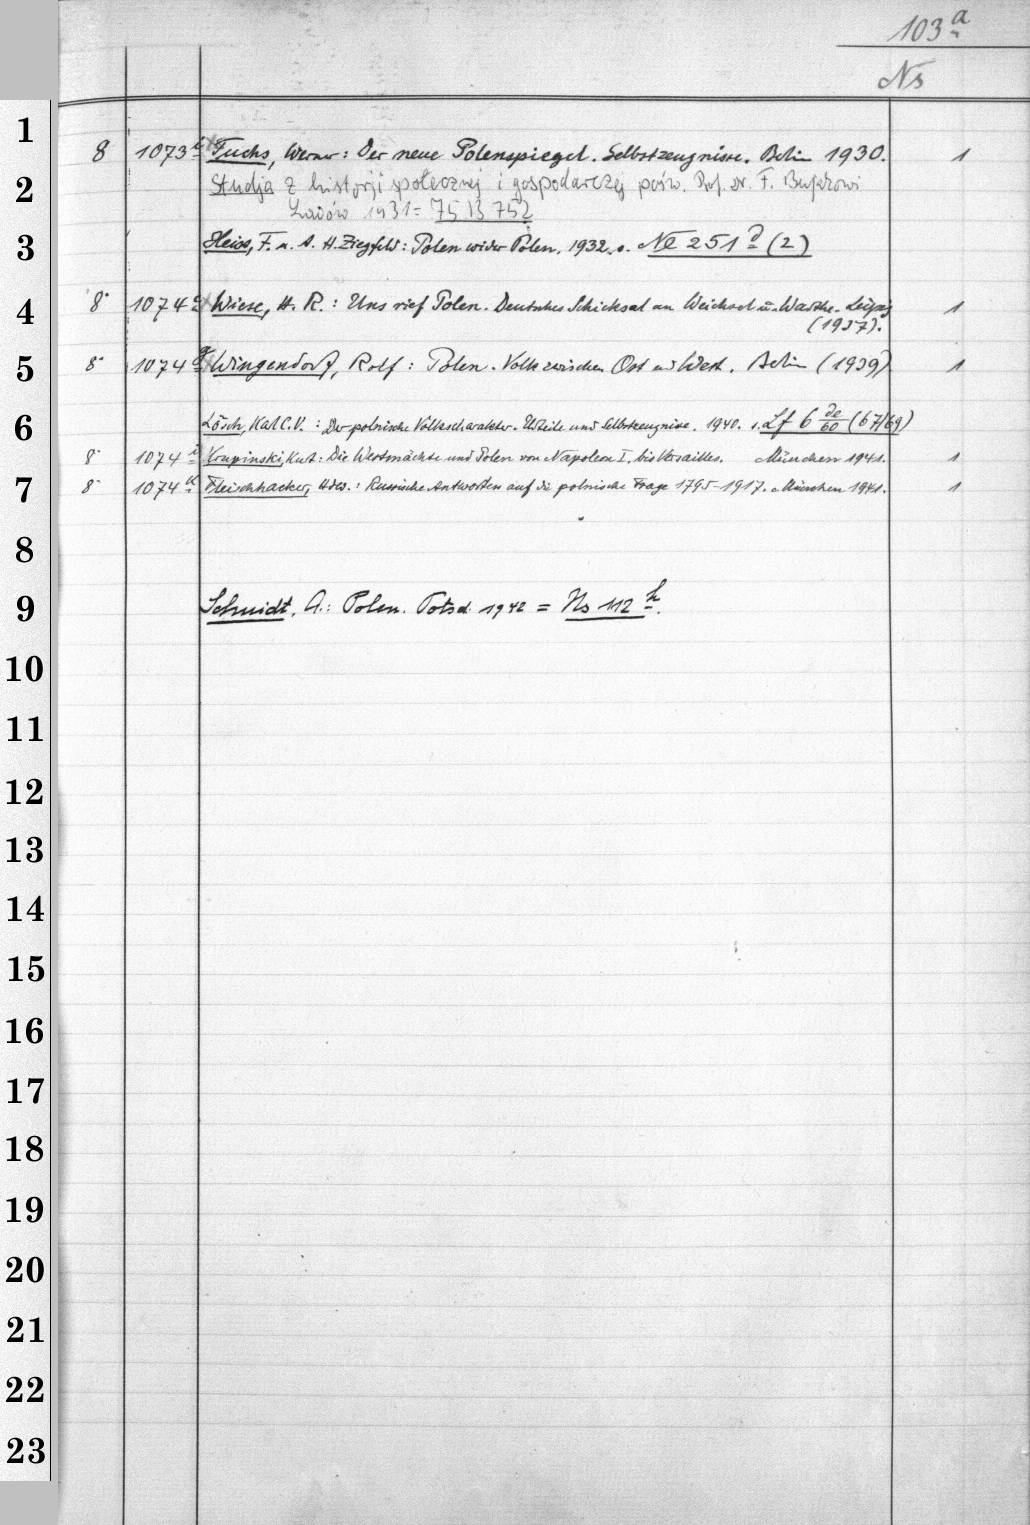 103ª
Ns
1
8 1073 i Fuchs, Werner: Der neue Polenspiegel. Selbstzeugnisse. Berlin 1930. 1
2 Studja z historji społecznej i gospodarczej pośw. Prof. dr. F. Bujakowi
Lwów 1931 = 75 B 752
3 Heiss, F. u. A. H. Ziegfeld: Polen wider Polen. 1932. s. Ne 251 d (2)
4 8° 1074 Wiese, H. R.: Uns rief Polen. Deutsches Schicksal an Weichsel u. Warthe. Leipzig 1
(1937).
5 8° 1074 g Wingendorf, Rolf: Polen. Volk zwischen Ost und West. Berlin (1939) 1
6 Lösch, Karl C. v.: Der polnische Volkscharakter. Urteile und Selbstzeugnisse. 1940. s. Lf 6 de/60 (67/69)
8° 1074 i Krupinski, Kurt: Die Westmächte und Polen von Napoleon I. bis Versailles. München 1941. 1
7 8° 1074 k Fleischhacker, Hdwg.: Russische Antworten auf die polnische Frage 1795-1917. München 1941. 1
8
9 Schmidt, A.: Polen. Potsd. 1942 = Ns 112 h.
10
11
12
13
14
15
16
17
18
19
20
21
22
23